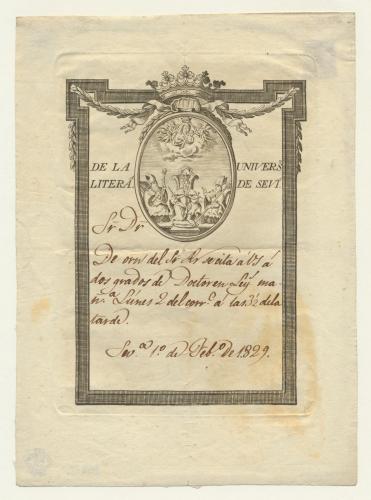 DE LA UNIVERS.
LITERA. DE SEVI.
Sr. Dr.
De orn del Sr. Rr se cita á VS á
dos grados de Doctor en Ley ma-
n.a Lúnes 2 del corr.o á las 3½ de la
tarde.
Sev.a 1.o de Feb.o de 1829.